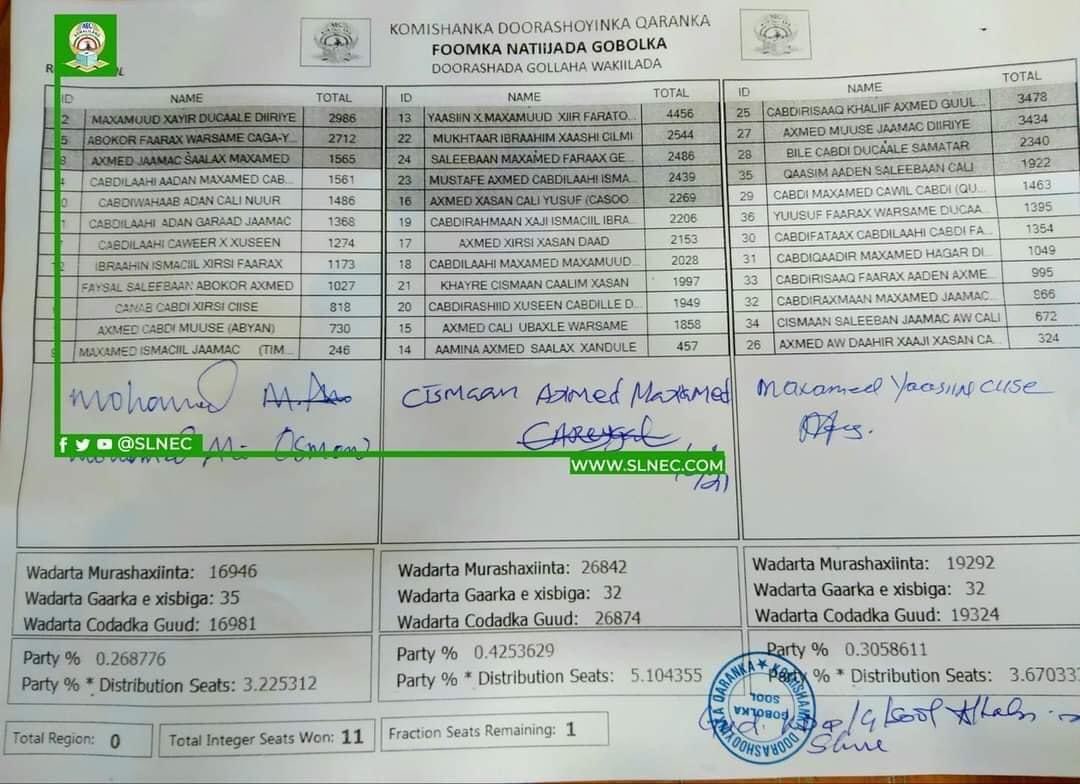 KOMISHANKA DOORASHOYINKA QARANKA
FOOMKA NATIIJADA GOBOLKA
DOORASHADA GOLLAHA WAKIILADA
ID NAME TOTAL
2 MAXAMUUD XAYIR DUCAALE DIIRIYE 2986
5 ABOKOR FAARAX WARSAME CAGA-Y... 2712
AXMED JAAMAC SAALAX MAXAMED 1565
CABDILAAHI AADAN MAXAMED CAB... 1561
CABDIWAHAAB ADAN CALI NUUR 1486
CABDILAAHI ADAN GARAAD JAAMAC 1368
CABDILAAHI CAWEER X XUSEEN 1274
IBRAAHIN ISMACIIL XIRSI FAARAX 1173
FAYSAL SALEEBAAN ABOKOR AXMED 1027
CANAB CABDI XIRSI CIISE 818
AXMED CABDI MUUSE (ABYAN) 730
MAXAMED ISMACIIL JAAMAC (TIM... 246
mohamed
Osman
@SLNEC
Wadarta Murashaxiinta: 16946
Wadarta Gaarka e xisbiga: 35
Wadarta Codadka Guud: 16981
Party % 0.268776
Party % * Distribution Seats: 3.225312
ID NAME TOTAL
13 YAASIIN X.MAXAMUUD XIIR FARATO... 4456
22 MUKHTAAR IBRAAHIM XAASHI CILMI 2544
24 SALEEBAAN MAXAMED FARAAX GE... 2486
23 MUSTAFE AXMED CABDILAAHI ISMA... 2439
16 AXMED XASAN CALI YUSUF (CASOO... 2269
19 CABDIRAHMAAN XAJI ISMACIIL IBRA... 2206
17 AXMED XIRSI XASAN DAAD 2153
18 CABDILAAHI MAXAMED MAXAMUUD... 2028
21 KHAYRE CISMAAN CAALIM XASAN 1997
20 CABDIRASHIID XUSEEN CABDILLE D... 1949
15 AXMED CALI UBAXLE WARSAME 1858
14 AAMINA AXMED SAALAX XANDULE 457
Cismaan Axmed Maxamed
WWW.SLNEC.COM
Wadarta Murashaxiinta: 26842
Wadarta Gaarka e xisbiga: 32
Wadarta Codadka Guud: 26874
Party % 0.4253629
Party % * Distribution Seats: 5.104355
ID NAME TOTAL
25 CABDIRISAAQ KHALIIF AXMED GUUL... 3478
27 AXMED MUUSE JAAMAC DIIRIYE 3434
28 BILE CABDI DUCAALE SAMATAR 2340
35 QAASIM AADEN SALEEBAAN CALI 1922
29 CABDI MAXAMED CAWIL CABDI (QU... 1463
36 YUUSUF FAARAX WARSAME DUCAA... 1395
30 CABDIFATAAX CABDILAAHI CABDI FA... 1354
31 CABDIQAADIR MAXAMED HAGAR DI... 1049
33 CABDIRISAAQ FAARAX AADEN AXME... 995
32 CABDIRAXMAAN MAXAMED JAAMAC... 866
34 CISMAAN SALEEBAN JAAMAC AW CALI 672
26 AXMED AW DAAHIR XAAJI XASAN CA... 324
Maxamed Yaasiin Ciise
Wadarta Murashaxiinta: 19292
Wadarta Gaarka e xisbiga: 32
Wadarta Codadka Guud: 19324
Party % 0.3058611
Party % * Distribution Seats: 3.67033
KOMISHANKA DOORASHOOYINKA QARANKA
GOBOLKA
SOOL
Total Region: 0
Total Integer Seats Won: 11
Fraction Seats Remaining: 1